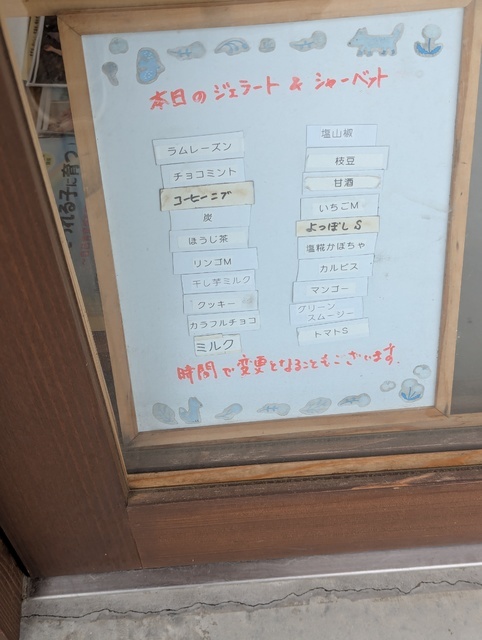 本日のジェラート & シャーベット
ラムレーズン
チョコミント
コーヒーニブ
炭
ほうじ茶
リンゴM
干し芋ミルク
クッキー
カラフルチョコ
ミルク
塩山椒
枝豆
甘酒
いちごM
よつぼしS
塩糀かぼちゃ
カルピス
マンゴー
グリーン
スムージー
トマトS
時間で変更となることもございます。
れる子に育つ